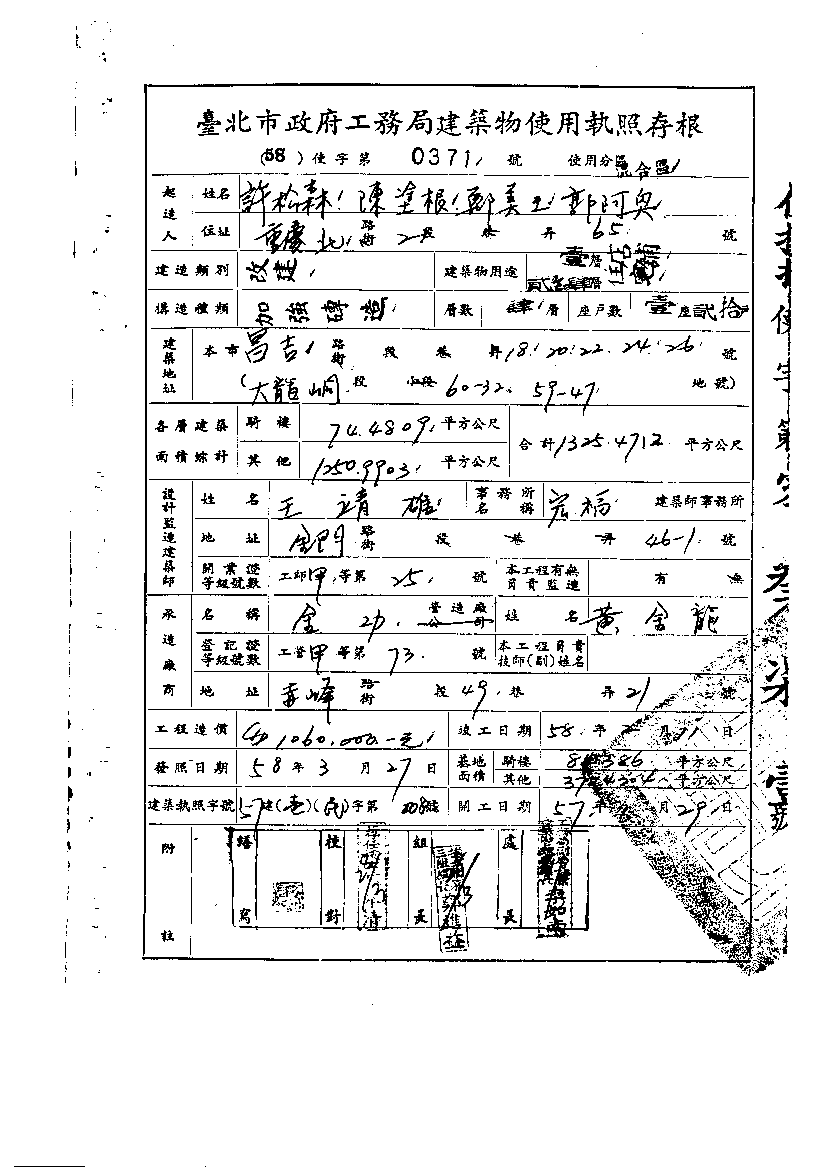 臺北市政府工務局建築物使用執照存根
(58)使字第 0371 號 使用分區 混合區
起造人 姓名 許松森 陳塗根 鄭美玉 郭阿與
住址 重慶北 路街 2 段 巷 弄 65 號
建造類別 改建 建築物用途 壹層 住店 貳叁肆層
構造種類 加強磚造 層數 肆層 座戶數 壹座貳拾
建築地址 本市 昌吉 路街 段 巷 弄 18.20.22.24.26 號
(大龍峒 段 小段 60-32. 59-47 地號)
各層建築面積綜計 騎樓 74.4809 平方公尺 合計 1325.4712 平方公尺
其他 1250.9903 平方公尺
設計監造建築師 姓名 王靖雄 事務所名稱 宏福 建築師事務所
地址 金門 路街 段 巷 弄 46-1 號
開業證等級號數 工師甲等第 25 號 本工程有無負責監造 有 無
承造廠商 名稱 金 營造廠公司 姓名 黃金龍
登記證等級號數 工營甲等第 73 號 本工程負責技師(副)姓名
地址 赤峰 路街 段 49 巷 弄 21 號
工程造價 1060,000.-元 竣工日期 58 年 2 月 日
發照日期 58 年 3 月 27 日 基地面積 騎樓 平方公尺
其他 平方公尺
建築執照字號 57建(壹)(民)字第 號 開工日期 57 年 月 29 日
附註 繕寫 校對 組長 處長
使字第 叁柒壹號